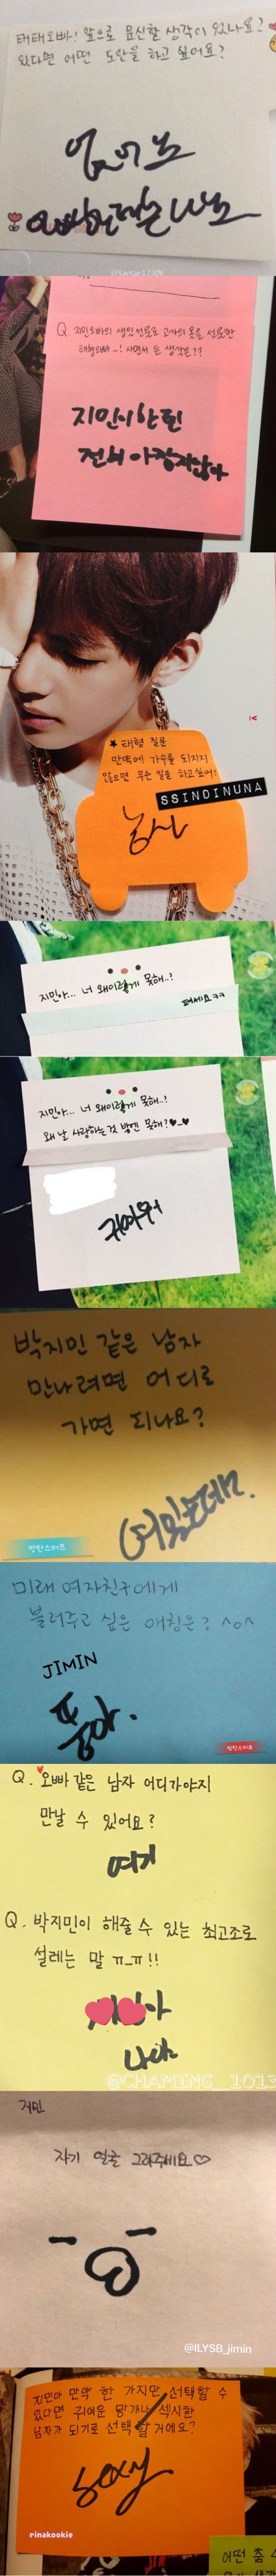 태태오빠! 앞으로 문신할 생각이 있나요?
있다면 어떤 도안을 하고 싶어요?
@taetae1230V
Q. 지민오빠의 생일선물로 고가의 옷을 선물한
태형오빠..! 사면서 든 생각은??
지민이한텐
전혀 아깝지않아
★ 태형 질문
만약에 가수를 되지지
않으면 무슨 일을 하고싶어?
SSINDINUNA
농사
지민아... 너 왜이렇게 못해..!
펴세요ㅋㅋ
지민아... 너 왜이렇게 못해..!
왜 날 사랑하는것 밖엔 못해?♥_♥
귀여워
박지민 같은 남자
만나려면 어디로
가면 되나요?
여깄는데.
방탄스머프
미래 여자친구에게
불러주고 싶은 애칭은? ^o^
JIMIN
방탄스머프
Q. 오빠 같은 남자 어디가야지
만날 수 있어요?
여기
Q. 박지민이 해줄 수 있는 최고조로
설레는 말 ㅠ_ㅠ!!
나다
@CHAMING__1013
지민
자기 얼굴 그려주세요♡
@ILYSB_jimin
지민아 만약 한 가지만 선택할 수
있다면 귀여운 망개나 섹시한
남자가 되기로 선택할 거에요?
sexy
rinakookie
어떤 춤